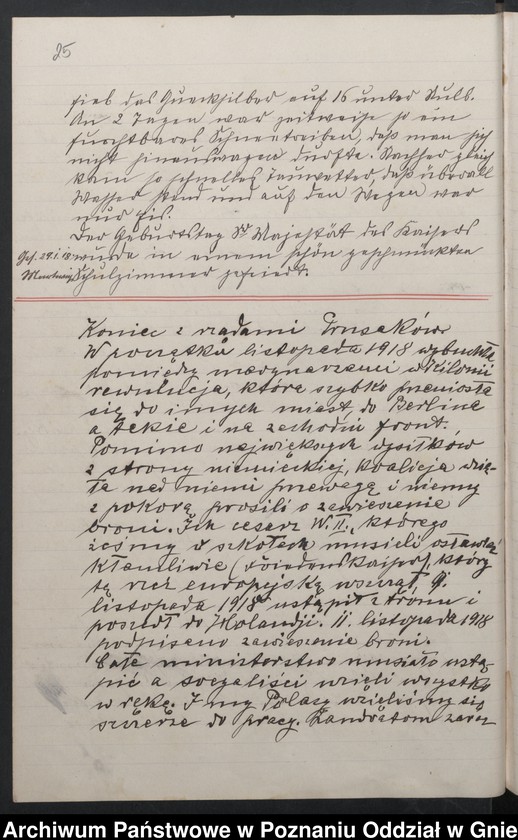 25
fiel das Quecksilber auf 16 unter Null.
An 2 Tagen war zeitweise so ein
furchtbares Schneetreiben, daß man sich
nicht hinauswagen durfte. Nachher gleich
kam so schnelles Tauwetter, daß überall
Wasser stand und auf den Wegen war
nur Eis.
Der Geburtstag Sr Majestät des Kaisers
Ges. 29.1.18 wurde in einem schön geschmückten
Schulzimmer gefeiert.
Koniec z rządami Prusaków
W początku listopada 1918 wybuchła
pomiędzy marynarzami w Kilonii
rewolucja, która szybko przeniosła
się do innych miast, do Berlina
a także i na zachodni front.
Pomimo największych wysiłków
z strony niemieckiej, koalicja wzię-
ła nad niemi przewagę i niemcy
z pokorą prosili o zawieszenie
broni. Ich cesarz W. II., którego
żeśmy w szkołach musieli ostawiać
kłamliwie (Friedenskaiser), który
tę rzeź europejską wszczął, 9.
listopada 1918 ustąpił z tronu i
poszedł do Holandji. 11. listopada 1918
podpisano zawieszenie broni.
Całe ministerstwo musiało ustą-
pić a socjaliści wzięli wszystko
w rękę. I my Polacy wzięliśmy się
szczerze do pracy. Landrátom zaraz
Archiwum Państwowe w Poznaniu Oddział w Gnie